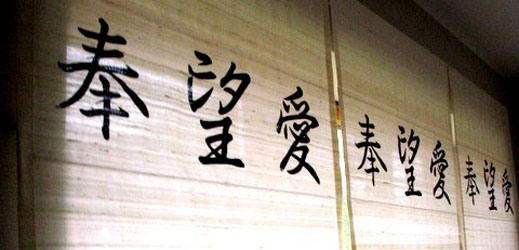 奉望愛
奉望愛
奉望愛